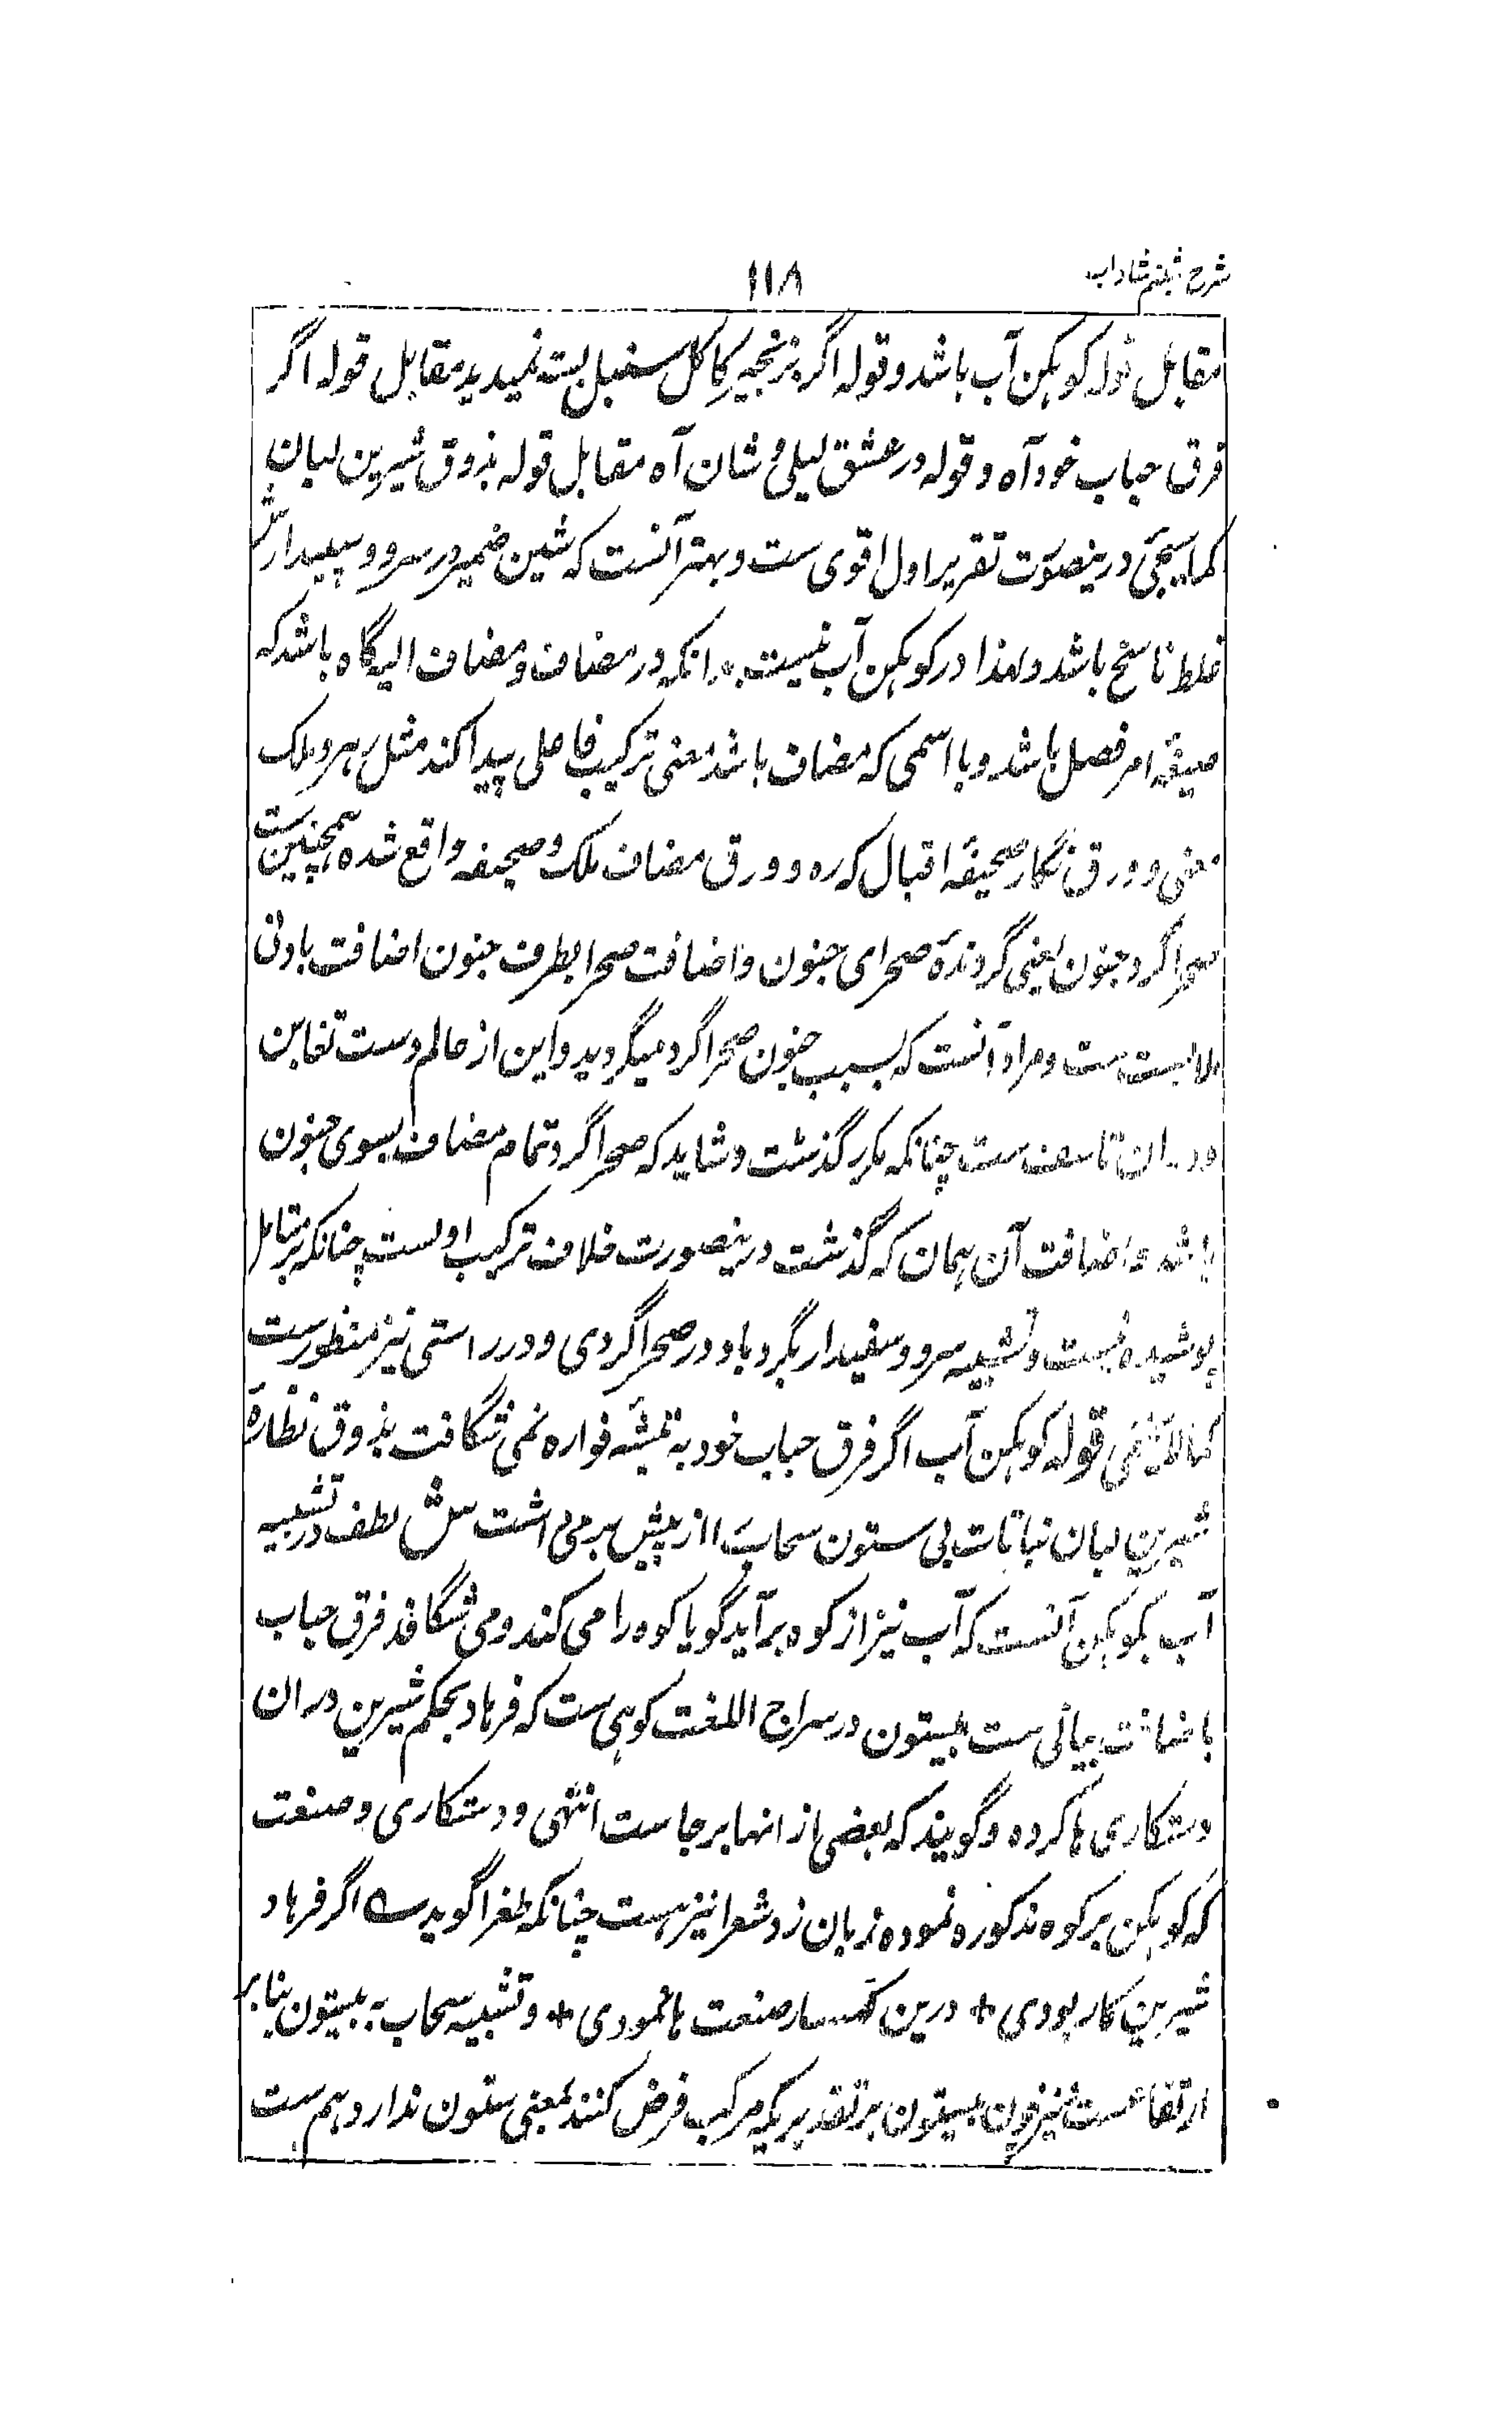 شرح شبنم شاداب
۱۱۸
مقابل قوله کوهکن آب باشد و قوله اگر بزنجیر کاکل سنبل بسته نمیدید مقابل قوله اگر
فرق حباب خود آه و قوله در عشق لیلی وشان آه مقابل قوله بذوق شیرین لبان
کما سیجئ درینصورت تقریر اول اقوی ست و بهتر آنست که شین ضمیر در سرو و سپیدارش
غلط ناسخ باشد ولهذا در کوهکن آب نیست بدانکه در مضاف و مضاف الیه گاه باشد که
صیغهٔ امر فصل باشد و با اسمی که مضاف باشد معنی ترکیب فاعلی پیدا کند مثل رهرو ملک
معنی و ورق نگار صحیفهٔ اقبال که ره و ورق مضاف ملک و صحیفه واقع شده همچنین ست
صحرا گرد جنون یعنی گردندهٔ صحرای جنون و اضافت صحرا بطرف جنون اضافت بادنی
ملابست ست و مراد آنست که بسبب جنون صحرا گرد میگردید و این از عالم دست تغابن
و دندان تاسف ست چنانکه مکرر گذشت و شاید که صحرا گرد تمام مضاف بسوی جنون
باشد و اضافت آن همان که گذشت درینصورت خلاف ترکیب اولست چنانکه بر متامل
پوشیده نیست و تشبیه سرو و سفیدار بگردباد در صحرا گردی و در راستی نیز منظورست
کما لا یخفی قوله کوهکن آب اگر فرق حباب خود به تیشهٔ فواره نمی شگافت بذوق نظارهٔ
شیرین لبان نباتات بی ستون سحاب را از پیش برمی داشت ش لطف در تشبیه
آب بکوهکن آنست که آب نیز از کوه برآید گویا کوه را می کند و می شگافد فرق حباب
باضافت بیانی ست بیستون در سراج اللغت کوهی ست که فرهاد بحکم شیرین دران
دستکاری ها کرده و گویند که بعضی از انها برجاست انتهی و دستکاری و صنعت
که کوهکن بر کوه مذکوره نموده زبان زد شعرا نیز هست چنانکه طغرا گوید ؎ اگر فرهاد
شیرین کار بودی + درین کهسار صنعت ها نمودی + و تشبیه سحاب به بیستون بنا بر
ارتفاعست نیز چون بیستون بر تقدیریکه مرکب فرض کنند بمعنی ستون ندارد هم ست